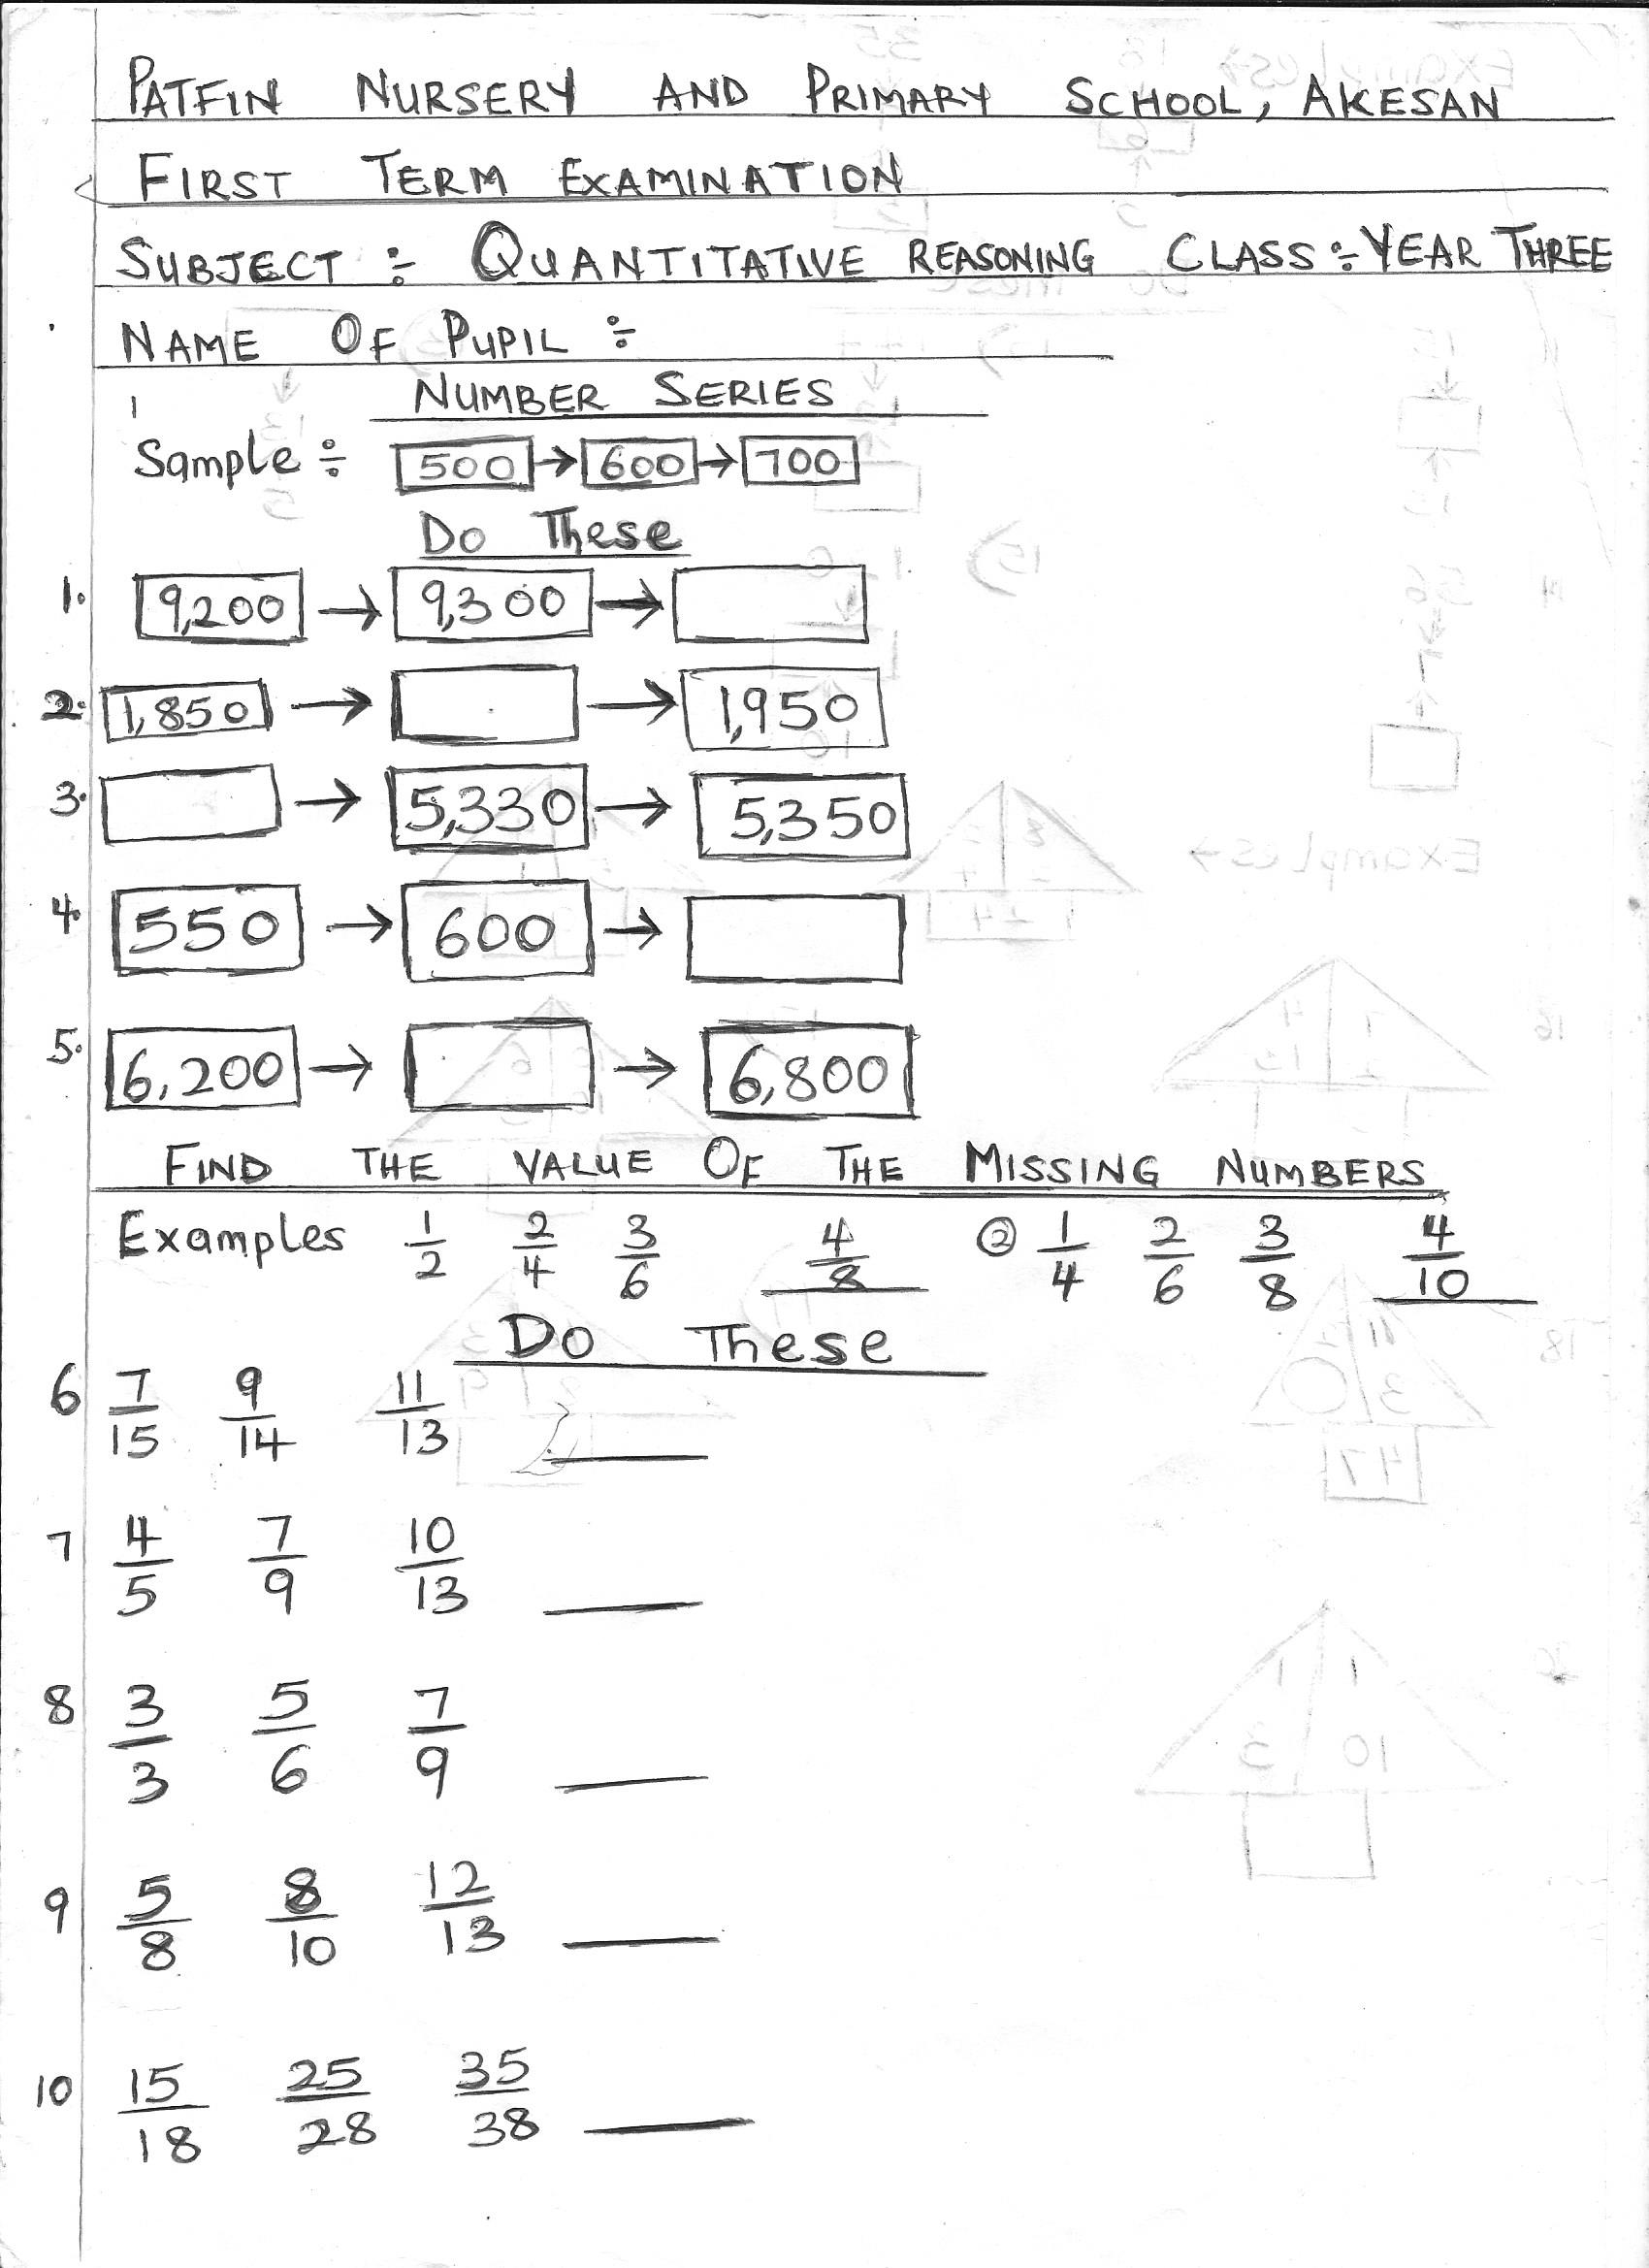 PATFIN NURSERY AND PRIMARY SCHOOL, AKESAN
FIRST TERM EXAMINATION
SUBJECT ÷ QUANTITATIVE REASONING CLASS ÷ YEAR THREE
NAME OF PUPIL ÷
1 NUMBER SERIES
Sample ÷ 500 → 600 → 700
Do These
1. 9,200 → 9,300 →
2. 1,850 → → 1,950
3. → 5,330 → 5,350
4. 550 → 600 →
5. 6,200 → → 6,800
FIND THE VALUE OF THE MISSING NUMBERS
Examples 1/2 2/4 3/6 4/8 ② 1/4 2/6 3/8 4/10
Do These
6 7/15 9/14 11/13
7 4/5 7/9 10/13
8 3/3 5/6 7/9
9 5/8 8/10 12/13
10 15/18 25/28 35/38